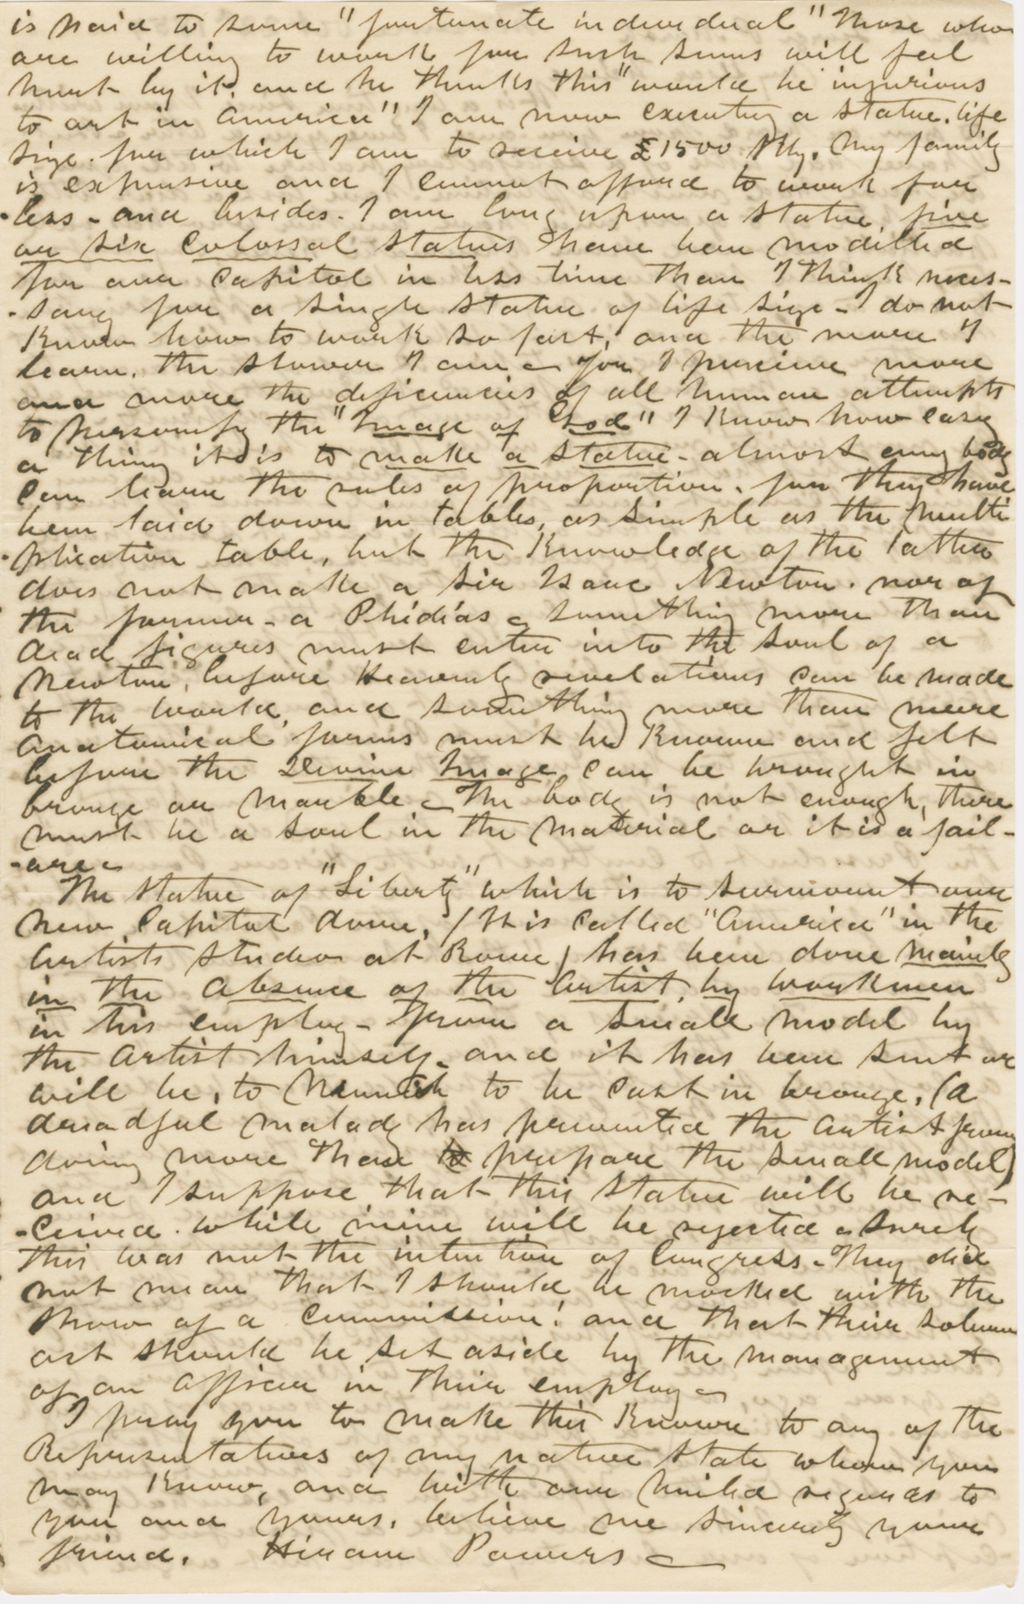 is paid to some "fortunate individual" Those who
are willing to work for such sums will feel
hurt by it, and he thinks this "would be injurious
to art in America" I am now executing a statue, life
size. for which I am to receive £1500 My family
is expensive and I cannot afford to work for
less - and besides. I am long upon a statue, five
or six colossal statues have been modelled
for our Capitol in less time than I think neces-
-sary for a single statue of life size - I do not
know how to work so fast, and the more I
learn, the slower I am - for I perceive more
and more the deficiencies of all human attempts
to personify the "Image of God" I know how easy
a thing it is to make a statue - almost any body
can learn the rules of proportion. for they have
been laid down in tables, as simple as the multi
-plication table, but the knowledge of the latter
does not make a Sir Isaac Newton. nor of
the former - a Phidias - something more than
dead figures must enter into the soul of a
Newton, before Heavenly revelations can be made
to the world, and something more than mere
anatomical forms must be known and felt
before the Divine Image can be wrought in
bronze or marble - The body is not enough, there
must be a soul in the material or it is a fail-
-ure -
The statue of "Liberty" which is to surmount our
new Capitol dome, (It is called "America" in the
Artists studio at Rome) has been done mainly
in the absence of the Artist, by workmen
in his employ - from a small model by
the Artist himself - and it has been sent or
will be, to Munich to be cast in bronze, (a
dreadful malady has prevented the Artist from
doing more than to prepare the small model)
and I suppose that this statue will be re-
-ceived. while mine will be rejected - Surely
this was not the intention of Congress - They did
not mean that I should be mocked with the
show of a commission! and that their solemn
act should be set aside by the management
of an officer in their employ -
I pray you to make this known to any of the
Representatives of my native State whom you
may know, and with our united regards to
you and yours, believe me sincerely your
friend. Hiram Powers -